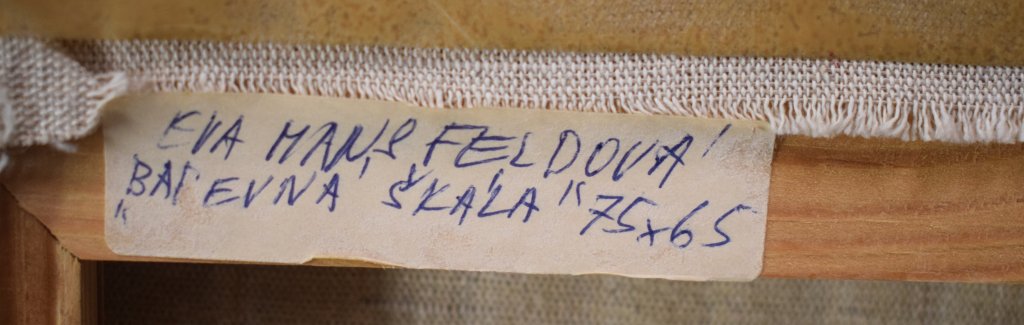 EVA MANSFELDOVÁ
"BAREVNÁ ŠKÁLA" 75x65